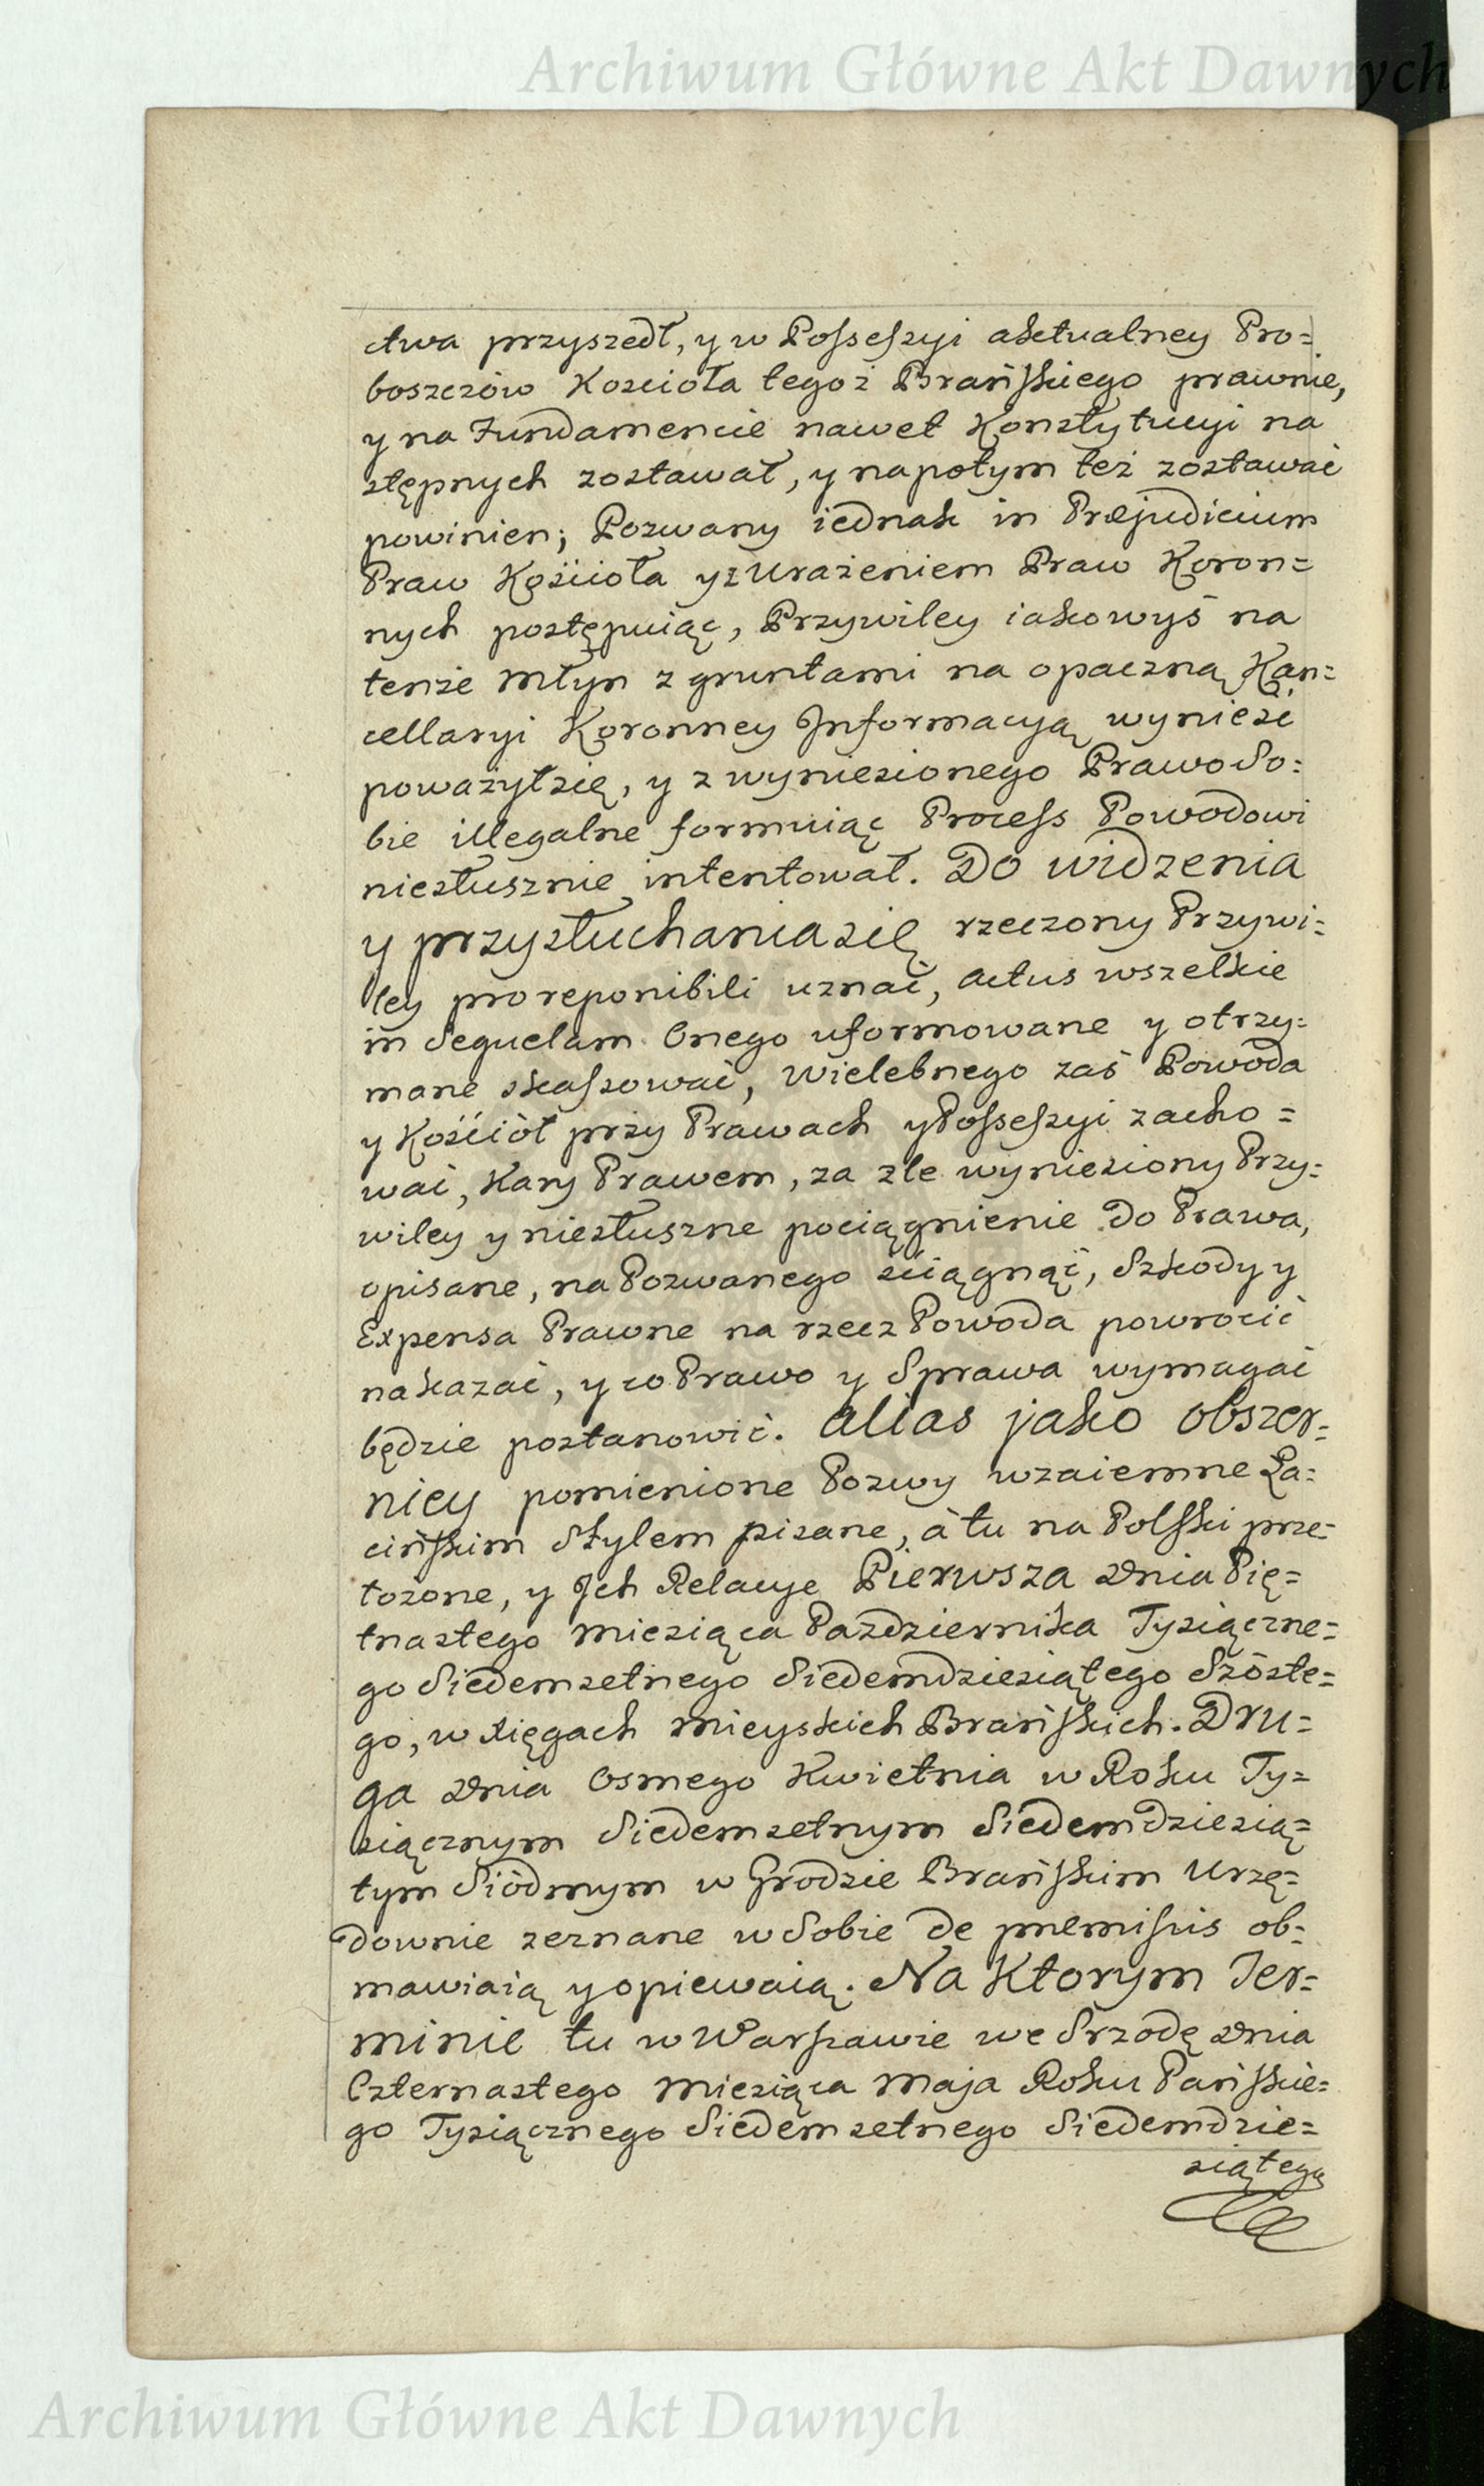 Archiwum Główne Akt Dawnych
ctwa przyszedł, y w Possessyi aktualney Pro=
boszczów Koscioła tegoż Brańskiego prawnie,
y na Fundamencie nawet Konstytucyi na
stępnych zostawał, y napotym też zostawać
powinien; Pozwany iednak in Præjudicium
Praw Kościoła y z Urażeniem Praw Koron=
nych postępuiąc, Przywiley iakowyś na
tenże Młyn z gruntami na opaczną Kan=
cellaryi Koronney Informacyją wynieść
poważył się, y z wyniesionego Prawo So=
bie illegalne formuiąc Process Powodowi
niesłusznie intentował. Do widzenia
y przysłuchania się rzeczony Przywi=
ley pro reponibili uznać, Actus wszelkie
in Sequelam Onego uformowane y otrzy=
mane skassować, Wielebnego zaś Powoda
y Kościół przy Prawach y Possessyi zacho=
wać, Kary Prawem, za źle wyniesiony Przy=
wiley y niesłuszne pociągnienie Do Prawa,
opisane, na Pozwanego ściągnąć, Szkody y
Expensa Prawne na rzecz Powoda powrocić
nakazać, y co Prawo y Sprawa wymagać
będzie postanowić. Alias jako obszer=
niey pomienione Pozwy wzaiemne Ła=
cińskim Stylem pisane, à tu na Polski prze=
łożone, y Ich Relacye Pierwsza Dnia Pię=
tnastego Miesiąca Pazdziernika Tysiączne=
go Siedemsetnego Siedemdziesiątego Szóste=
go, w Xięgach Mieyskich Brańskich. Dru=
ga Dnia Osmego Kwietnia w Roku Ty=
siącznym Siedemsetnym Siedemdziesią=
tym Siódmym w Grodzie Brańskim Urzę=
downie zeznane w Sobie de præmissis ob=
mawiaią y opiewaią. Na Ktorym Ter=
minie tu w Warszawie we Srzodę Dnia
Czternastego Miesiąca Maja Roku Pańskie=
go Tysiącznego Siedemsetnego Siedemdzie=
siątego
Archiwum Główne Akt Dawnych